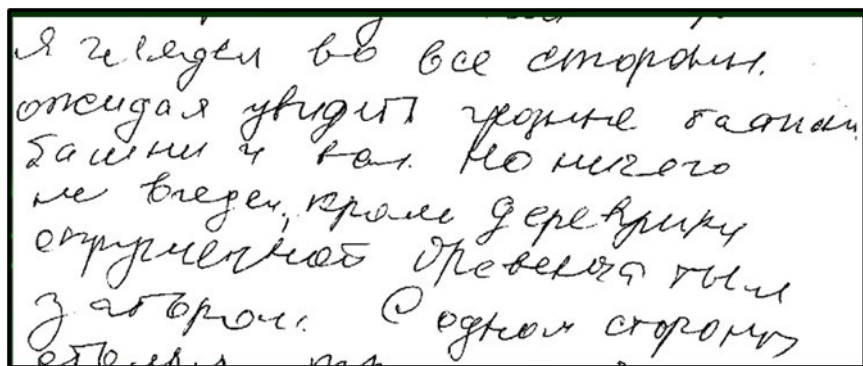 я глядел во все стороны.
ожидая увидит грозные бастионы
башни и вал. Но ничего
не видел, кроме деревушки
окруженной бревенчатым
забором. С одной стороны